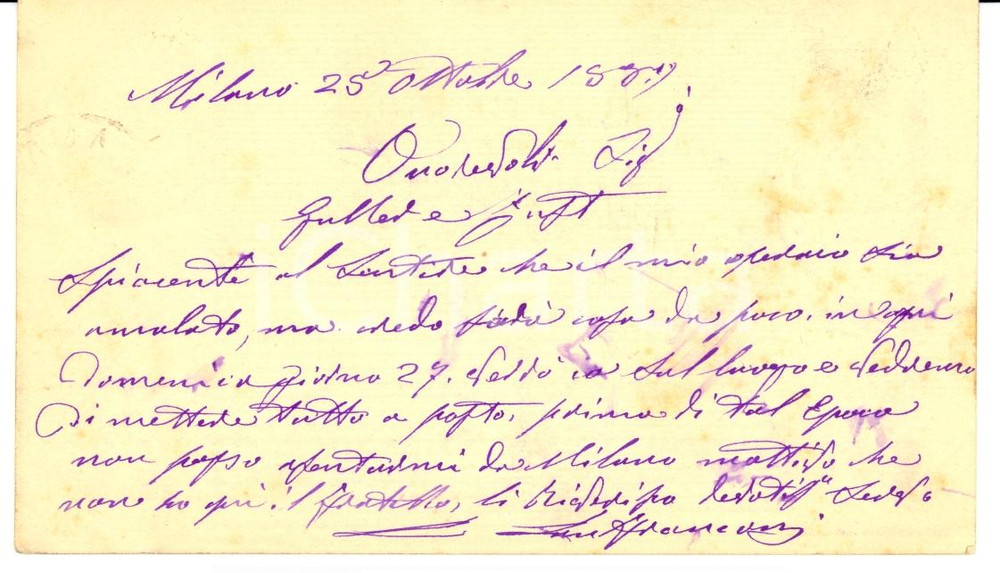 Milano 25 Ottobre 1889.
Onorevoli Sigri
Guller e Zust
Spiacente al Sentire che il mio operaio sia
amalato, ma credo sarà cosa da poco, in ogni
Domenica giorno 27. verrò io sul luogo e vedremo
Di mettere tutto a posto, prima di tal Epoca
non posso assentarmi da Milano mottivo che
non ho qui il fratello, li Riverisco devotiss Servo
Lanfranconi